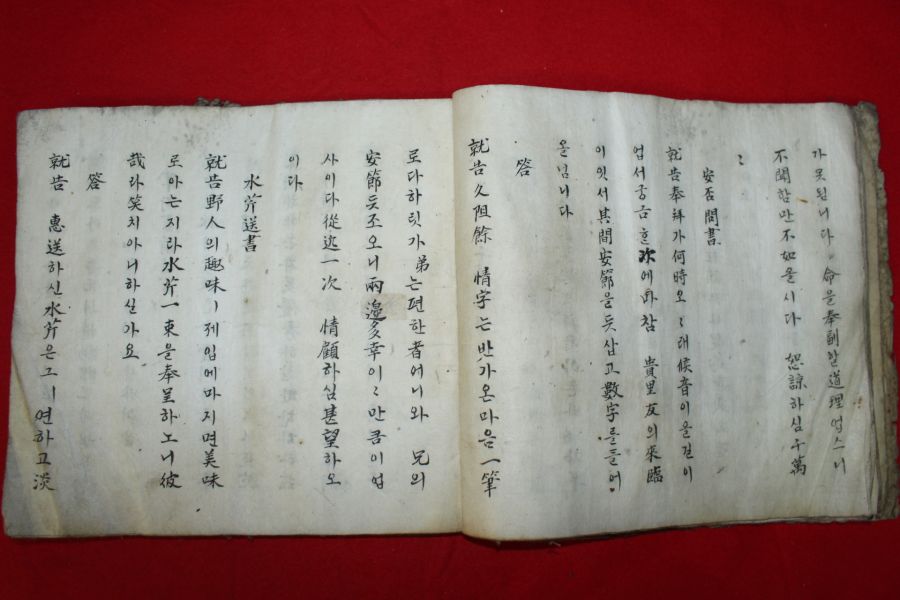 가못됩니다 命을奉副할道理업스니
不聞함만不如올시다 恕諒하심千萬
〻
安否問書
就告奉拜가何時오〻래候音이올길이
업서궁금흔次에마참 貴里友의來臨
이잇서其間安節을듯삽고數字를들어
올님니다
答
就告久阻餘 情字는반가온마음一筆
로다하릿가 弟는편한者어니와 兄의
安節듯조오니兩邊多幸이〻만큼이업
사이다從近一次 情顧하심甚望하오
이다
水芹送書
就告野人의趣味ㅣ제입에마지면美味
로아는지라水芹一束을奉呈하노니彼
哉라笑치아니하실가요
答
就告 惠送하신水芹은그ㅣ연하고淡